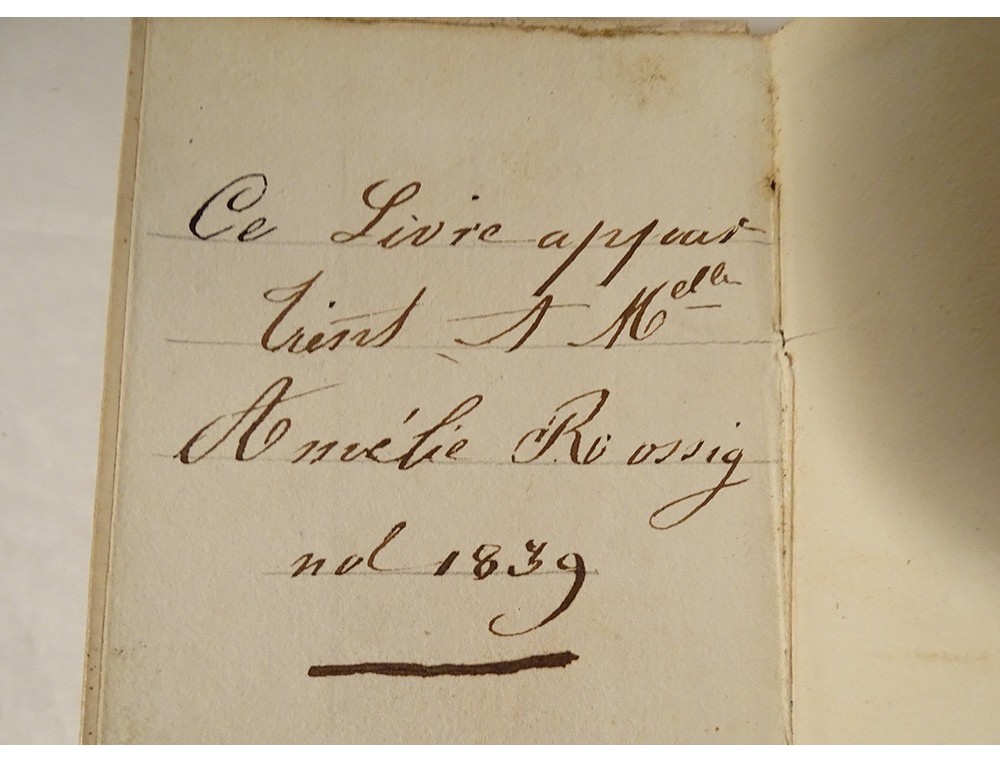 Ce Livre appar
tient A Melle
Amélie Rossig
nol 1839